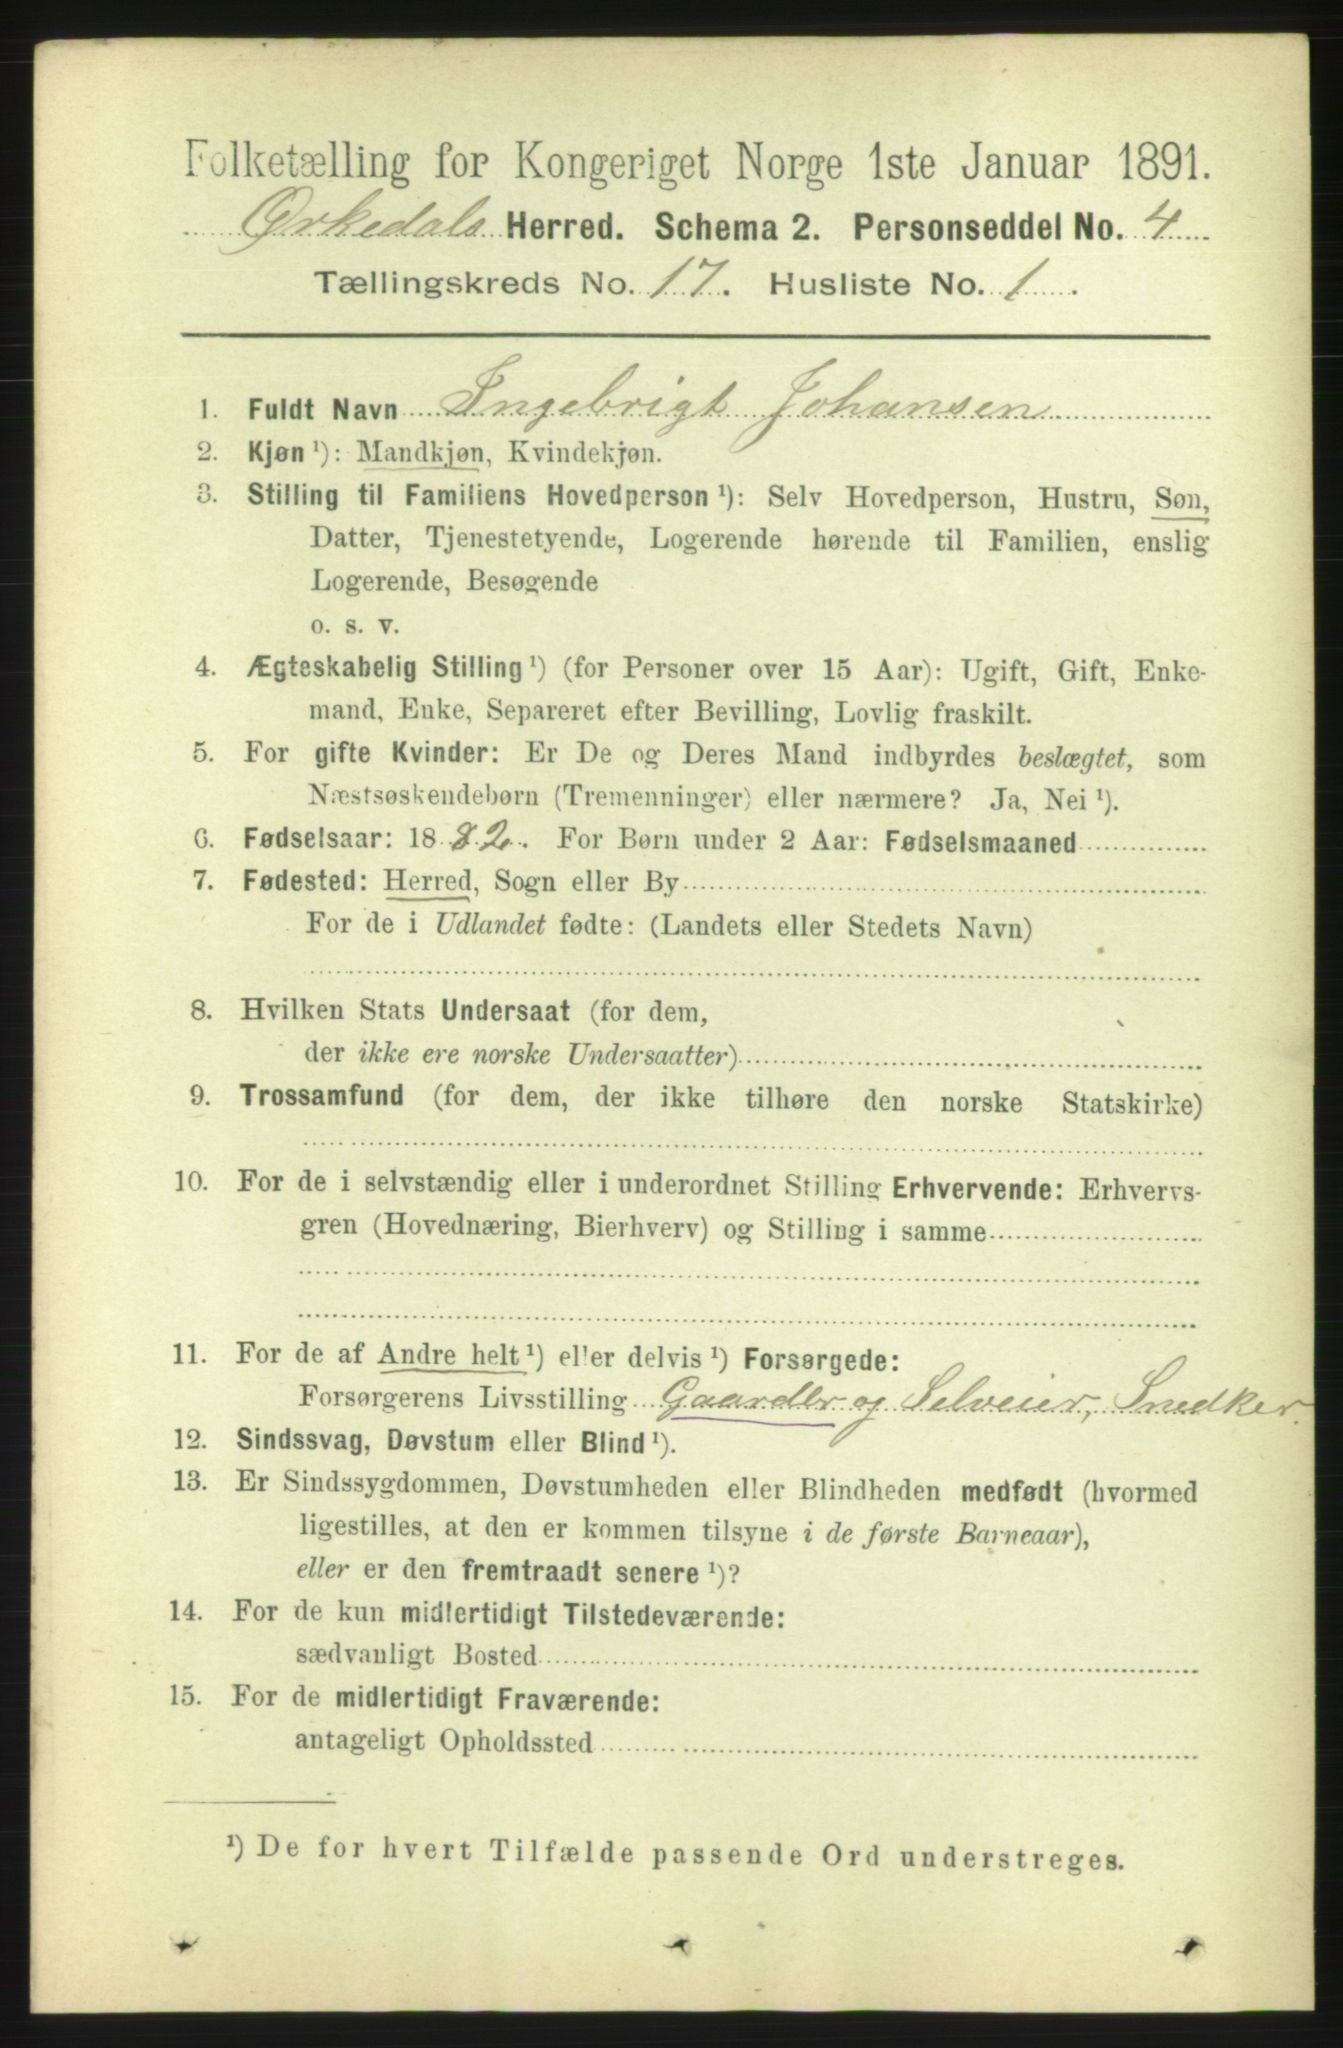 Folketælling for Kongeriget Norge 1ste Januar 1891.
Ørkedals Herred. Schema 2. Personseddel No. 4
Tællingskreds No. 17. Husliste No. 1.
1. Fuldt Navn Ingebrigt Johansen
2. Kjøn ¹): Mandkjøn, Kvindekjøn.
3. Stilling til Familiens Hovedperson ¹): Selv Hovedperson, Hustru, Søn,
Datter, Tjenestetyende, Logerende hørende til Familien, enslig
Logerende, Besøgende
o. s. v.
4. Ægteskabelig Stilling ¹) (for Personer over 15 Aar): Ugift, Gift, Enke-
mand, Enke, Separeret efter Bevilling, Lovlig fraskilt.
5. For gifte Kvinder: Er De og Deres Mand indbyrdes beslægtet, som
Næstsøskendebørn (Tremenninger) eller nærmere? Ja, Nei ¹).
6. Fødselsaar: 1882. For Børn under 2 Aar: Fødselsmaaned
7. Fødested: Herred, Sogn eller By
For de i Udlandet fødte: (Landets eller Stedets Navn)
8. Hvilken Stats Undersaat (for dem,
der ikke ere norske Undersaatter)
9. Trossamfund (for dem, der ikke tilhøre den norske Statskirke)
10. For de i selvstændig eller i underordnet Stilling Erhvervende: Erhvervs-
gren (Hovednæring, Bierhverv) og Stilling i samme
11. For de af Andre helt ¹) eller delvis ¹) Forsørgede:
Forsørgerens Livsstilling Gaardbr og Selveier, Snedker.
12. Sindssvag, Døvstum eller Blind ¹).
13. Er Sindssygdommen, Døvstumheden eller Blindheden medfødt (hvormed
ligestilles, at den er kommen tilsyne i de første Barneaar),
eller er den fremtraadt senere ¹)?
14. For de kun midlertidigt Tilstedeværende:
sædvanligt Bosted
15. For de midlertidigt Fraværende:
antageligt Opholdssted
¹) De for hvert Tilfælde passende Ord understreges.